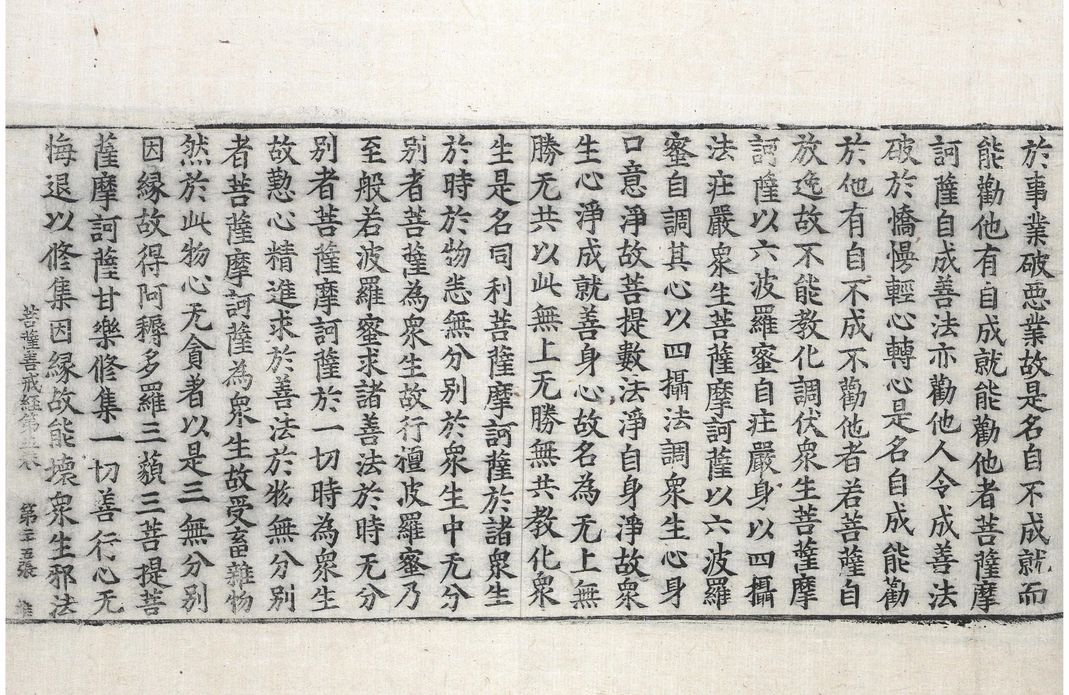 於事業破惡業故是名自不成就而
能勸他有自成就能勸他者菩薩摩
訶薩自成善法亦勸他人令成善法
破於憍慢輕心轉心是名自成能勸
於他有自不成不勸他者若菩薩自
放逸故不能教化調伏衆生菩薩摩
訶薩以六波羅蜜自疘嚴身以四攝
法疘嚴衆生菩薩摩訶薩以六波羅
蜜自調其心以四攝法調衆生心身
口意淨故菩提數法淨自身淨故衆
生心淨成就善身心故名為无上無
勝无共以此無上无勝無共教化衆
生是名司利菩薩摩訶薩於諸衆生
於時於物悉無分别於衆生中无分
别者菩薩為衆生故行檀波羅蜜乃
至般若波羅蜜求諸善法於時无分
别者菩薩摩訶薩於一切時為衆生
故懃心精進求於善法於物無分别
者菩薩摩訶薩為衆生故受畜雜物
然於此物心无貪者以是三無分别
因縁故得阿耨多羅三藐三菩提菩
薩摩訶薩甘樂修集一切善行心无
悔退以修集因縁故能壞衆生邪法
菩薩善戒経第五卷 第二十五張